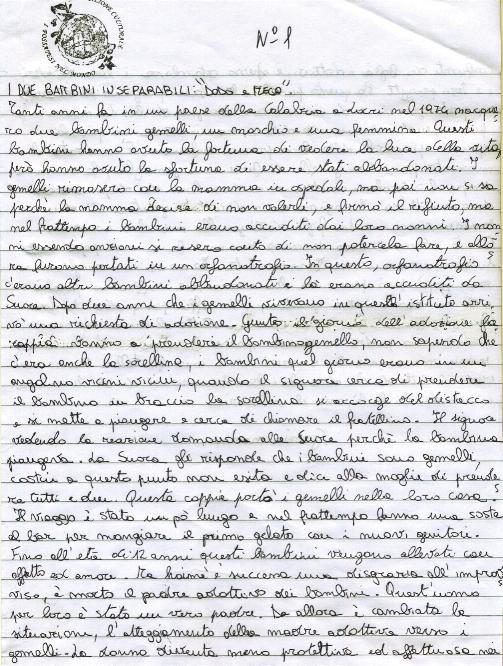 N°1
I DUE BAMBINI INSEPARABILI: "DODO e MECO".
Tanti anni fa in un paese della Calabria a Locri nel 1974 nacque
ro due bambini gemelli, un maschio e una femmina. Questi
bambini hanno avuto la fortuna di vedere la luce della vita,
però hanno avuto la sfortuna di essere stati abbandonati. I
gemelli rimasero con la mamma in ospedale, ma poi non si sa
perchè la mamma decise di non volerli, e firmò il rifiuto, ma
nel frattempo i bambini erano accuditi dai loro nonni. I non
ni essendo anziani si resero conto di non potercela fare, e allo
ra furono portati in un orfanotrofio. In questo, orfanotrofio
c'erano altri bambini abbandonati e là erano accuditi da
Suore. Dopo due anni che i gemelli vivevano in quell'istituto arri
vò una richiesta di adozione. Giunto il giorno dell'adozione la
coppia vanno a prendere il bambino gemello, non sapendo che
c'era anche la sorellina, i bambini quel giorno erano in un
angolino vicini vicini, quando il signore cerca di prendere
il bambino in braccio la sorellina si accorge del distacco
e si mette a piangere e cerca di chiamare il fratellino. Il signore
vedendo la reazione domanda alle Suore perchè la bambina
piangeva. La Suora gli risponde che i bambini sono gemelli,
costui a questo punto non esita e dice alla moglie di prende
re tutti e due. Questa coppia portò i gemelli nella loro casa.
Il viaggio è stato un pò lungo e nel frattempo fanno una sosta
al bar per mangiare il primo gelato con i nuovi genitori.
Fino all'età di 12 anni questi bambini vengono allevati con
affetto ed amore. Ma haimè è successa una disgrazia all'improv
viso, è morto il padre adottivo dei bambini. Quest'uomo
per loro è stato un vero padre. Da allora è cambiata la
situazione, l'atteggiamento della madre adottiva verso i
gemelli. La donna diventa meno protettiva ed affettuosa nei